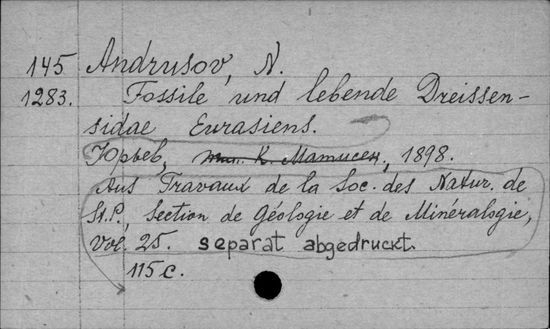 145 Andrusov, N.
1283. Fossile und lebende Dreissen-
sidae Eurasiens.
Юрьев, тип. К. Матисен, 1898.
Aus Travaux de la Soc. des Natur. de
St.P., Section de Géologie et de Minéralogie,
Vol. 25. separat abgedruckt.
115 c.